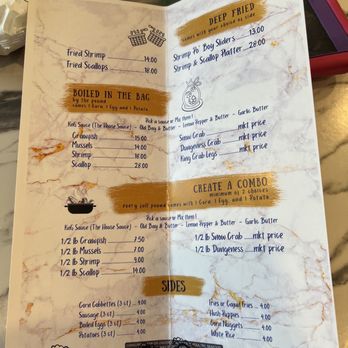 Fried Shrimp 14.00
Fried Scallops 18.00
DEEP FRIED
comes with your choice of side
Shrimp Po' Boy Sliders 13.00
Shrimp & Scallop Platter 28.00
BOILED IN THE BAG
by the pound
comes 1 Corn, 1 Egg and 1 Potato
Pick a sauce or Mix them!
KaG Sauce (The House Sauce) - Old Bay & Butter - Lemon Pepper & Butter - Garlic Butter
Crawfish 15.00
Mussels 14.00
Shrimp 18.00
Scallop 28.00
Snow Crab mkt price
Dungeness Crab mkt price
King Crab Legs mkt price
CREATE A COMBO
minimum of 2 choices
every full pound comes with 1 Corn, 1 Egg, and 1 Potato
Pick a sauce or Mix them!
KaG Sauce (The House Sauce) - Old Bay & Butter - Lemon Pepper & Butter - Garlic Butter
1/2 lb Crawfish 7.50
1/2 lb Mussels 7.00
1/2 lb Shrimp 9.00
1/2 lb Scallop 14.00
1/2 lb Snow Crab mkt price
1/2 lb Dungeness mkt price
SIDES
Corn Cobbettes (3 ct) 4.00
Sausage (3 ct) 4.00
Boiled Eggs (3 ct) 4.00
Potatoes (3 ct) 4.00
Fries or Cajun Fries 4.00
Hush Puppies 4.00
Corn Nuggets 4.00
White Rice 4.00